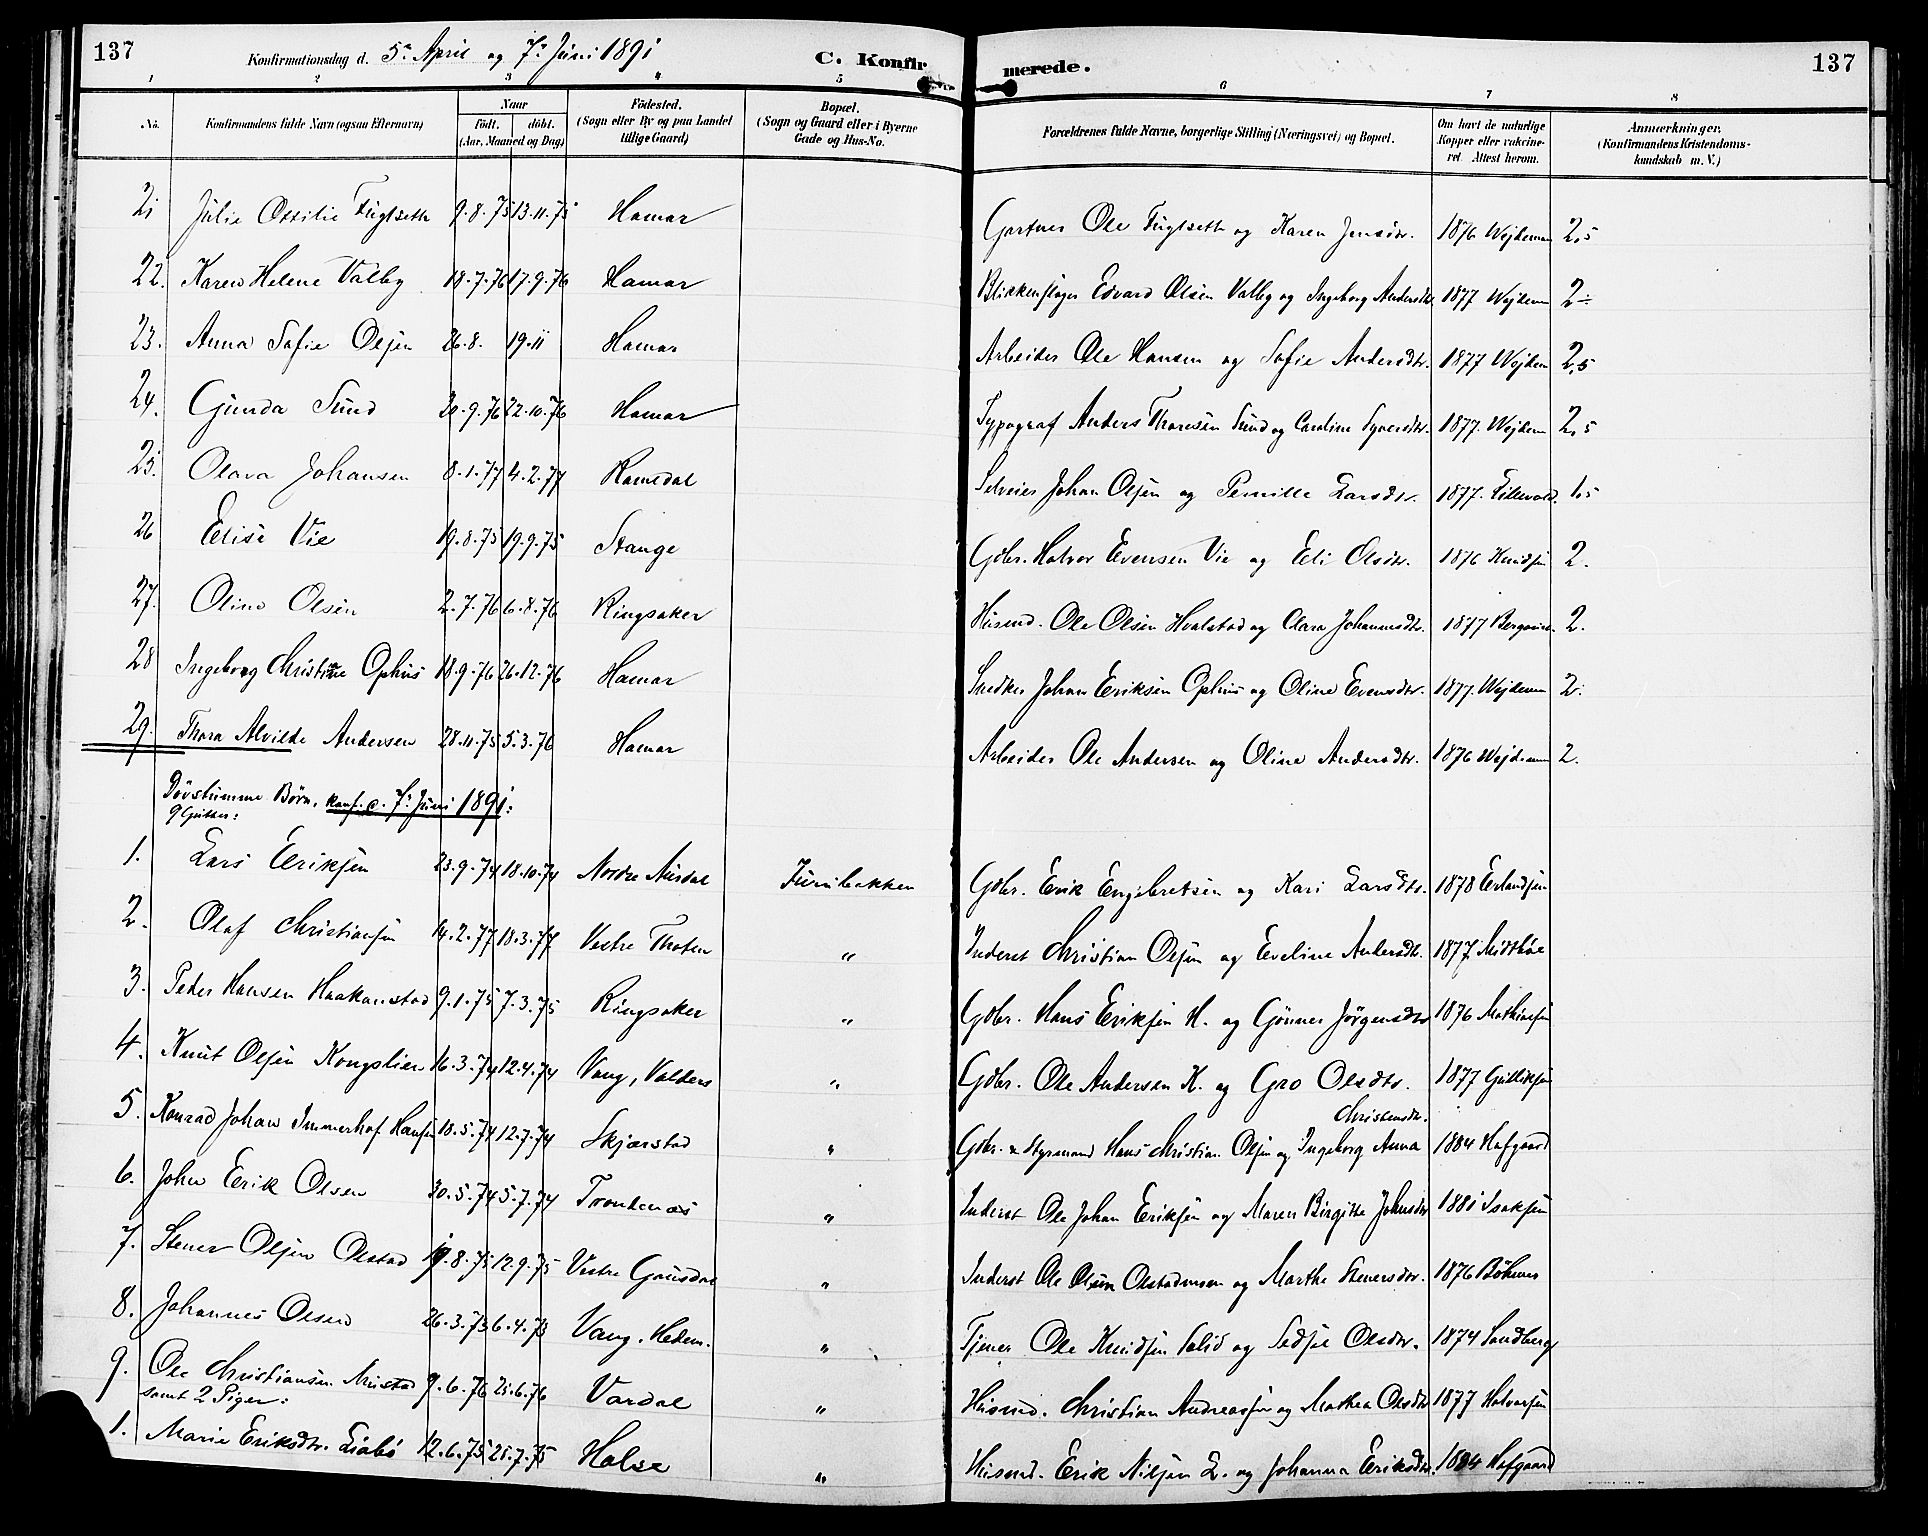 137 Konfirmationsdag d. 5te April og 7de Juni 1891 C. Konfirmerede. 137
1 2 3 4 5 6 7 8
No. Konfirmandens fulde Navn (ogsaa Efternavn) Naar födt. döbt. (Aar, Maaned og Dag) Födested. (Sogn eller By og paa Landet tillige Gaard) Bopæl. (Sogn og Gaard eller i Byerne Gade og Hus-No. Forældrenes fulde Navne, borgerlige Stilling (Næringsvei) og Bopæl. Om havt de naturlige Kopper eller vaccineret. Attest herom. Anmærkninger. (Konfirmandens Kristendomskundskab m. V.)
21 Julie Ottilie Fuglseth 9.8.75 13.11.75 Hamar Gartner Ole Fuglseth og Karen Jensdtr. 1876 Wejdeman 2,5
22. Karen Helene Valby 18.7.76 17.9.76 Hamar Blikkenslager Edvard Olsen Valby og Ingeborg Andersdtr. 1877 Wejdeman 2÷
23. Anna Sofie Olsen 26.8. 19.11 Hamar Arbeider Ole Hansen og Sofie Andersdtr. 1877 Wejdem 2,5
24. Gunda Sund 20.9.76 22.10.76 Hamar Typograf Anders Thoresen Sund og Caroline Syversdtr. 1877. Wejdem 2,5
25. Olava Johansen 8.1.77 4.2.77 Romedal Selveier Johan Olsen og Pernille Larsdtr. 1877. Lillevold. 1,5
26 Elise Vie 19.8.75 19.9.75 Stange Gdbr. Halvor Evensen Vie og Eli Olsdtr. 1876 Knudsen 2.
27. Oline Olsen 2.7.76 6.8.76 Ringsaker Husmd. Ole Olsen Hvalstad og Clara Johannesdtr. 1877 2.
28 Ingeborg Christine Ophus 18.9.76 26.12.76 Hamar Snedker Johan Eriksen Ophus og Oline Evensdtr. 1877. Wejdeman 2.
29. Thora Alvilde Andersen 28.11.75 5.3.76 Hamar Arbeider Ole Andersen og Oline Andersdtr. 1876 Wejdeman 2.
Døvstumme Børn, konf. d. 7de Juni 1891:
9 Gutter:
1. Lars Eriksen 23.9.74 18.10.74 Nordre Aurdal Furubakken Gdbr. Erik Engebretsen og Kari Larsdtr. 1878 Erlandsen
2. Olaf Christiansen 14.2.77 18.3.77 Vestre Thoten " Inderst Christian Olsen og Eveline Andersdtr. 1877. Midthöe
3. Peder Hansen Haakenstad 9.1.75 7.3.75 Ringsaker " Gdbr. Hans Eriksen H. og Gönner Jørgensdtr 1876 Mathiesen
4. Knut Olsen Kongslien 16.3.74 12.4.74 Vang, Valders " Gdbr. Ole Andersen K. og Gro Olsdtr. 1877 Gulliksen
5. Konrad Johan Immerhof Hansen 18.5.74 12.7.74 Skjærstad " Gdbr. & Styrmand Hans Christian Olsen og Ingeborg Anna Christensdtr. 1884 Hafgaard
6. Johan Erik Olsen 30.5.74 5.7.74 Trondenæs " Inderst Ole Johan Eriksen og Maren Birgitte Johnsdtr 1881 Isaksen
7. Stener Olsen Olstad 19.8.75 12.9.75 Vestre Gausdal " Inderst Ole Olsen Olstadmoen og Marthe Stenersdtr. 1876 Böhmer
8. Johannes Olsen 26.3.73 6.4.73 Vang, Hedem. " Tjener Ole Knudsen Solid og Sedsel Olsdtr. 1874 Sandberg
9. Ole Christiansen Mustad 9.6.76 25.6.76 Vardal " Husmd. Christian Andreassen og Mathea Olsdtr 1877 Halvorsen
samt 2 Piger:
1. Marie Eriksdtr. Liabö 12.6.75 25.7.75 Halse " Husmd. Erik Nilsen L. og Johanna Eriksdtr. 1884 Hafgaard